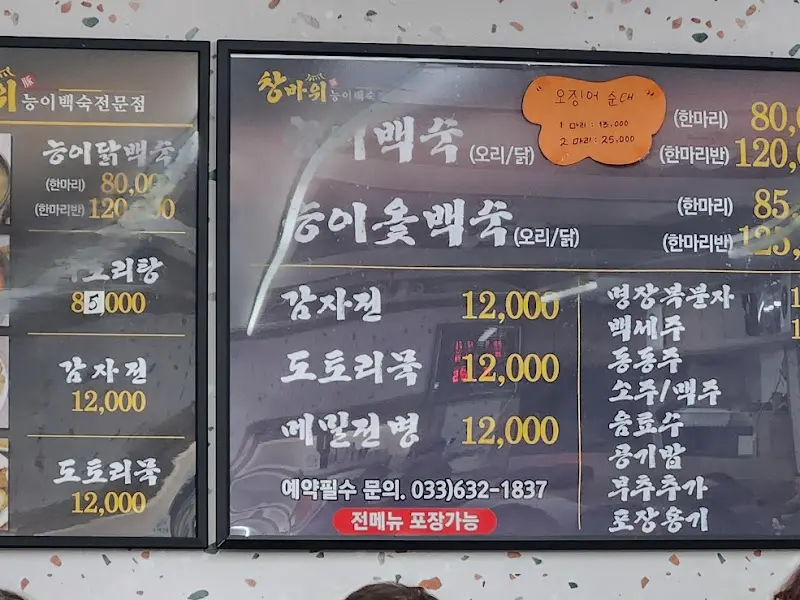 위
능이백숙전문점
능이닭백숙
(한마리) 80,000
(한마리반) 120,000
오리탕
85,000
감자전
12,000
도토리묵
12,000
창바위 능이백숙
이백숙 (오리/닭)
(한마리) 80,0
(한마리반) 120,0
" 오징어 순대 "
1 마리 : 13,000
2 마리 : 25,000
능이옻백숙 (오리/닭)
(한마리) 85,
(한마리반) 125,
감자전 12,000
도토리묵 12,000
메밀전병 12,000
예약필수 문의. 033)632-1837
전메뉴 포장가능
명장복분자 1
백세주 1
동동주
소주/맥주
음료수
공기밥
부추추가
포장용기